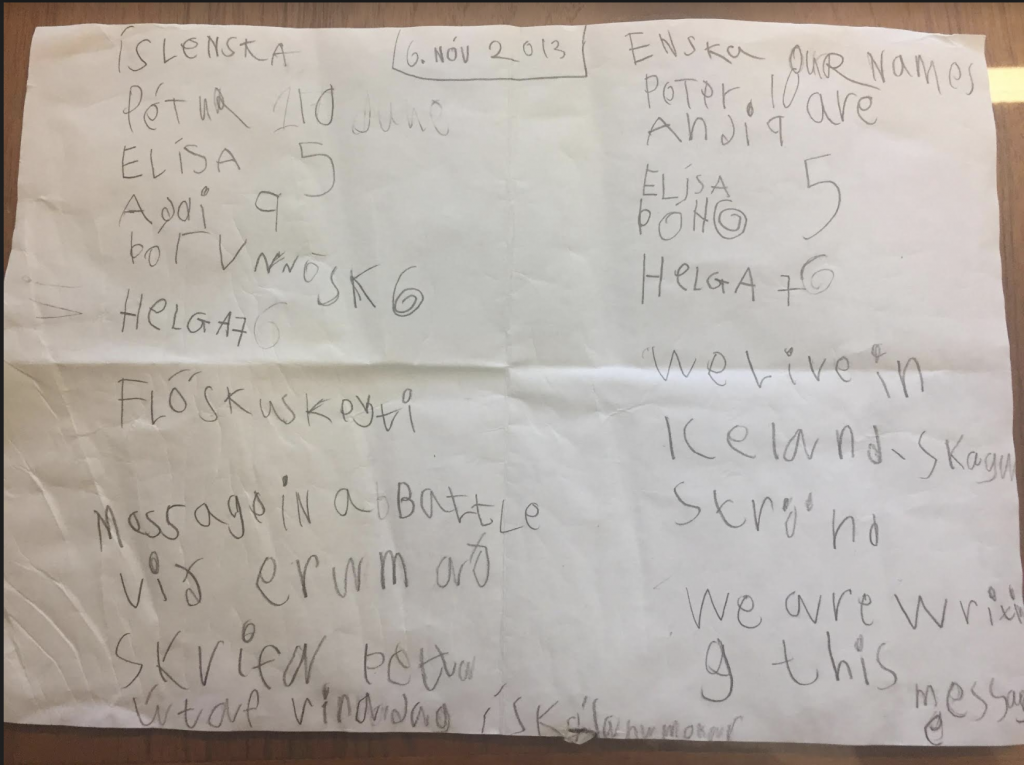 ÍSLENSKA
6. NÓV 2013
PÉTUR 10 June
ELÍSA 5
Addi 9
ÞOR
SK 6
HELGA 7 6
FLÖSKUSKEYTI
MESSAGE IN A BATTLE
við erum að
SKRIFA ÞETTA
útaf vinadag í
ENSKA OUR NAMES
PETER. 10 are
ANDI 9
ELÍSA 5
6
HELGA 7 6
we live in
Iceland
Strönd
we are writi
g this
message